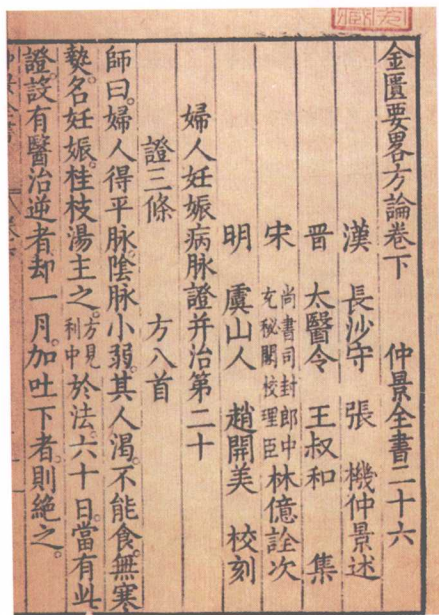 金匱要畧方論卷下 仲景全書二十六
漢 長沙守 張 機仲景述
晋 太醫令 王叔和 集
宋 尚書司封郎中充秘閣校理臣 林億詮次
明 虞山人 趙開美 校刻
婦人妊娠病脉證并治第二十
證三條 方八首
師曰。婦人得平脉。陰脉小弱。其人渴。不能食。無寒
熱。名妊娠。桂枝湯主之。方見利中於法。六十日。當有此
證。設有醫治逆者。却一月。加吐下者。則絶之。